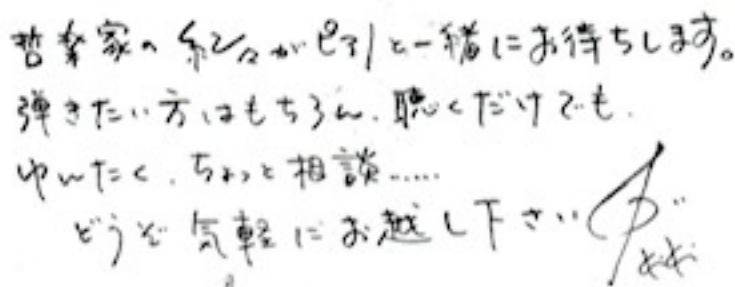 音楽家の がピアノと一緒にお待ちします。
弾きたい方はもちろん、聴くだけでも、
ゆんたく、ちょっと相談……
どうぞ気軽にお越し下さい